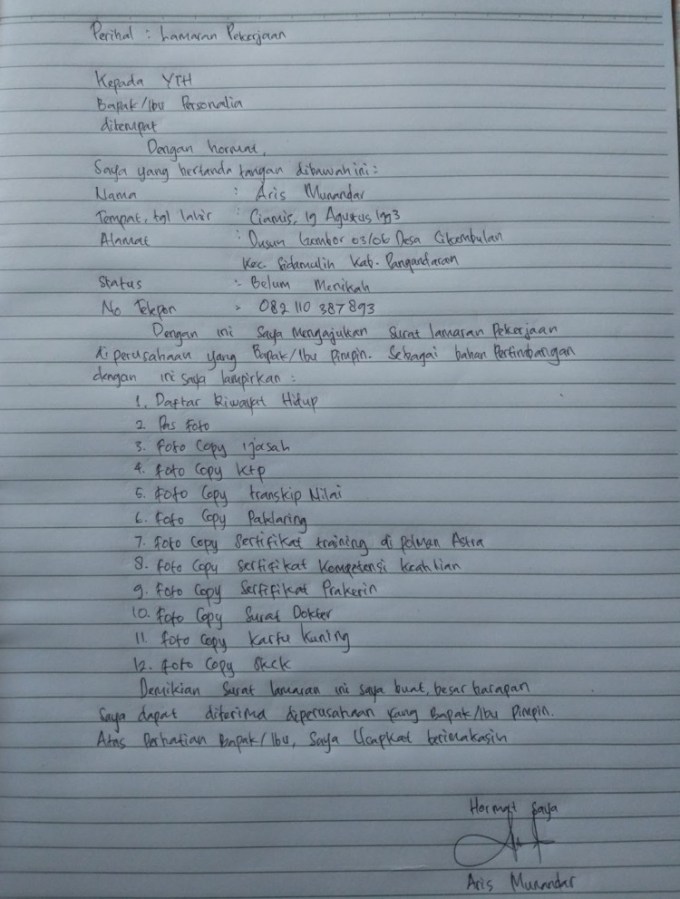 Perihal : Lamaran Pekerjaan
Kepada YTH
Bapak/Ibu Personalia
ditempat
Dengan hormat,
Saya yang bertanda tangan dibawah ini :
Nama : Aris Munandar
Tempat, tgl lahir : Ciamis, 19 Agustus 1993
Alamat : Dusun 03/06 Desa Cikembulan
Kec Sidamulih Kab. Pangandaran
Status : Belum Menikah
No Telepon : 082 110 387 893
Dengan ini Saya Mengajukan Surat lamaran Pekerjaan
di perusahaan yang Bapak/Ibu Pimpin. Sebagai bahan Pertimbangan
dengan ini saya lampirkan :
1. Daftar Riwayat Hidup
2. Pas Foto
3. Foto Copy ijasah
4. Foto Copy Ktp
5. Foto Copy transkip Nilai
6. Foto Copy Paklaring
7. Foto Copy Sertifikat training di Polman Astra
8. Foto Copy Sertifikat Kompetensi Keahlian
9. Foto Copy Sertifikat Prakerin
10. Foto Copy Surat Dokter
11. Foto Copy Kartu Kuning
12. Foto Copy Skck
Demikian Surat lamaran ini saya buat, besar harapan
Saya dapat diterima diperusahaan yang Bapak/Ibu Pimpin.
Atas Perhatian Bapak/Ibu, Saya Ucapkat terimakasih
Hormat Saya
Aris Munandar